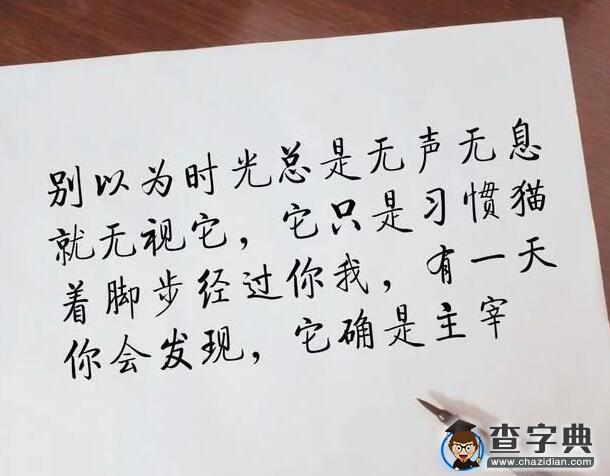 别以为时光总是无声无息
就无视它，它只是习惯猫
着脚步经过你我，有一天
你会发现，它确是主宰
查字典
www.chazidian.com